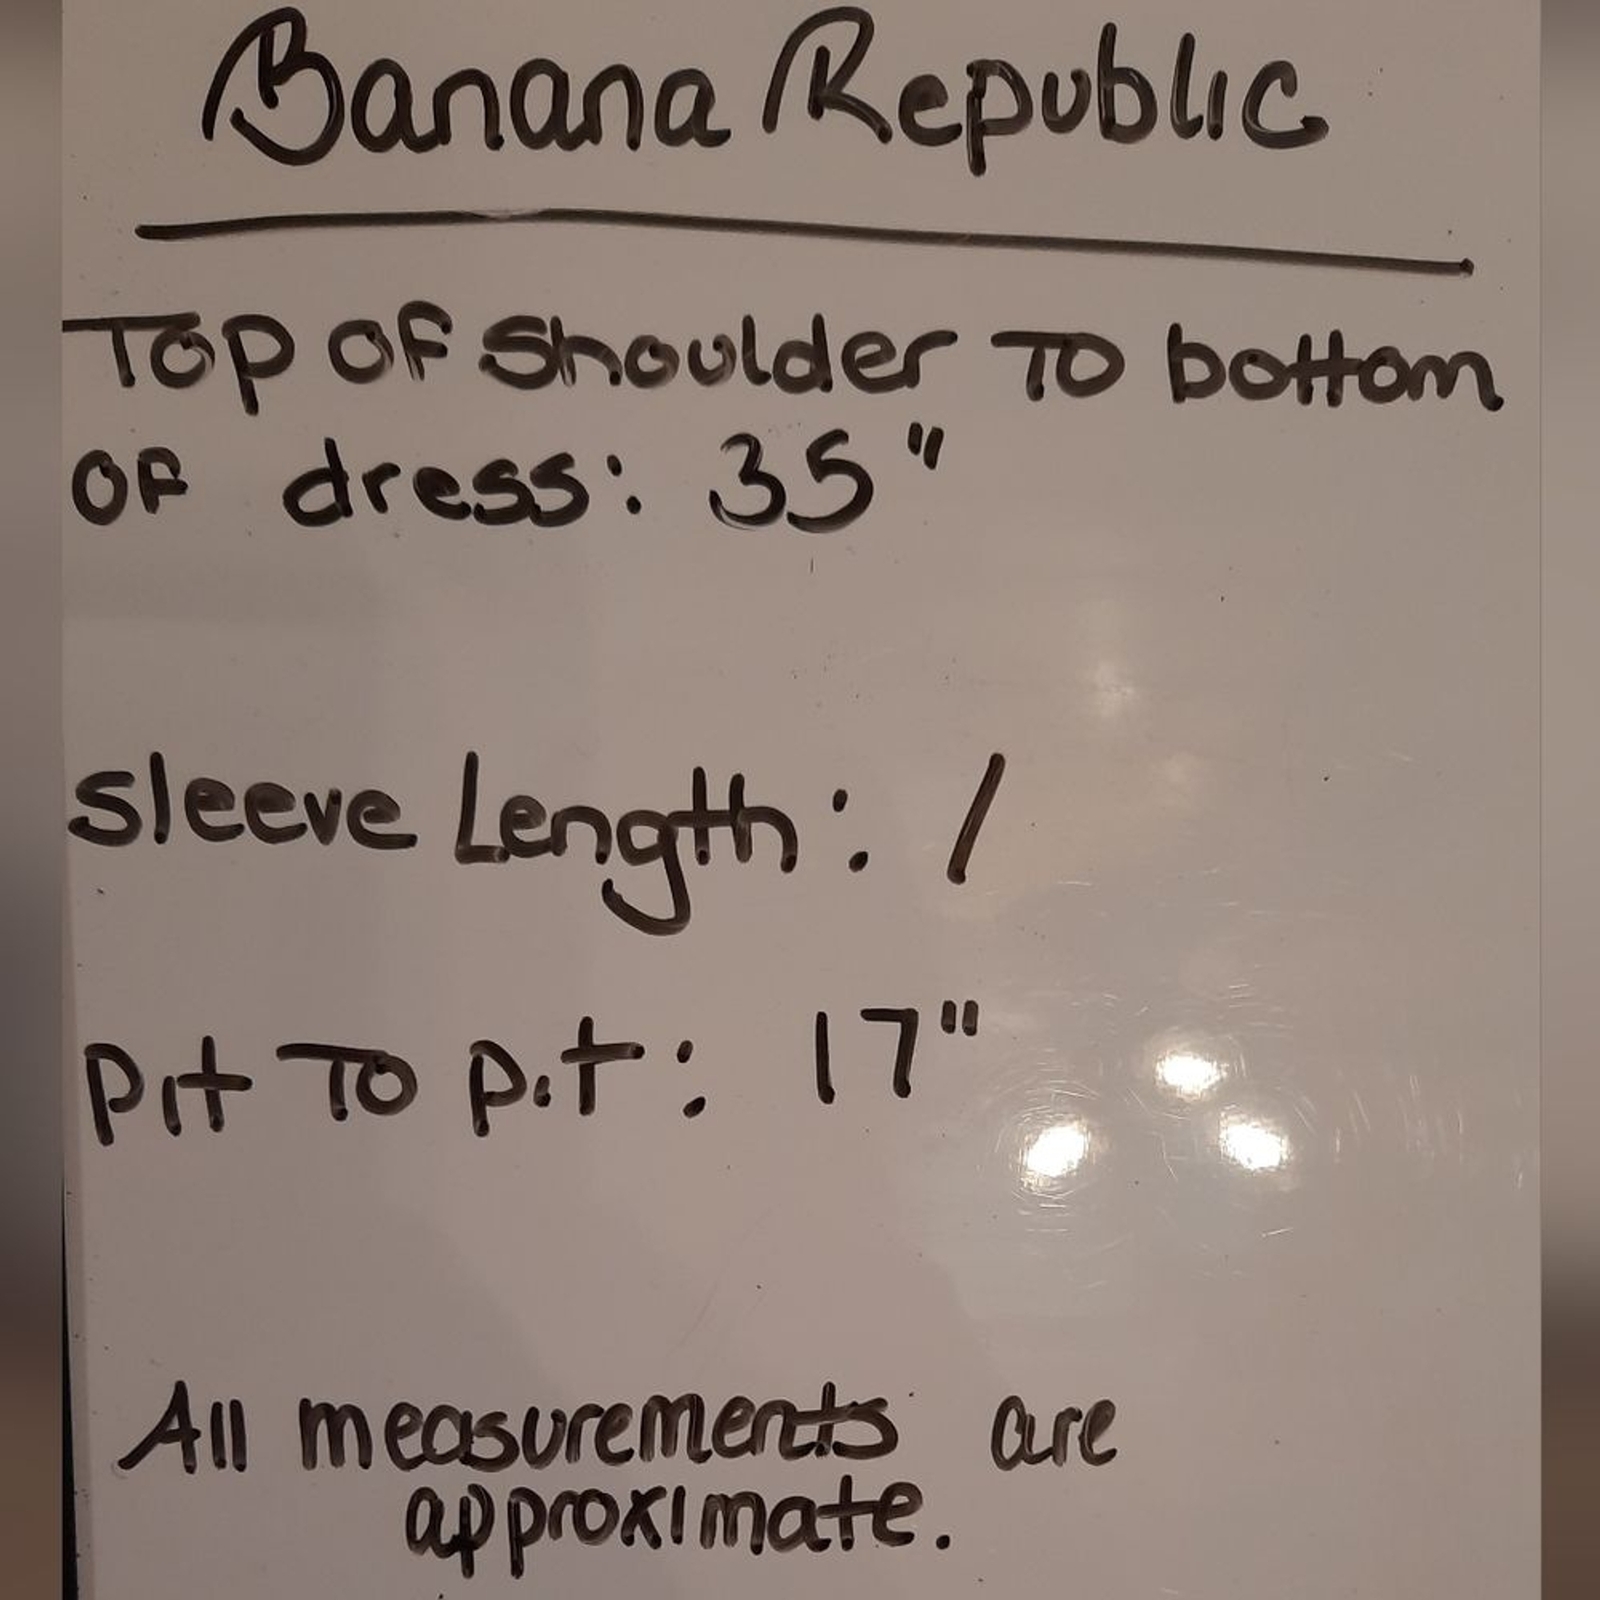 Banana Republic
Top of shoulder To bottom
of dress: 35"
Sleeve Length: /
pit To pit: 17"
All measurements are
approximate.